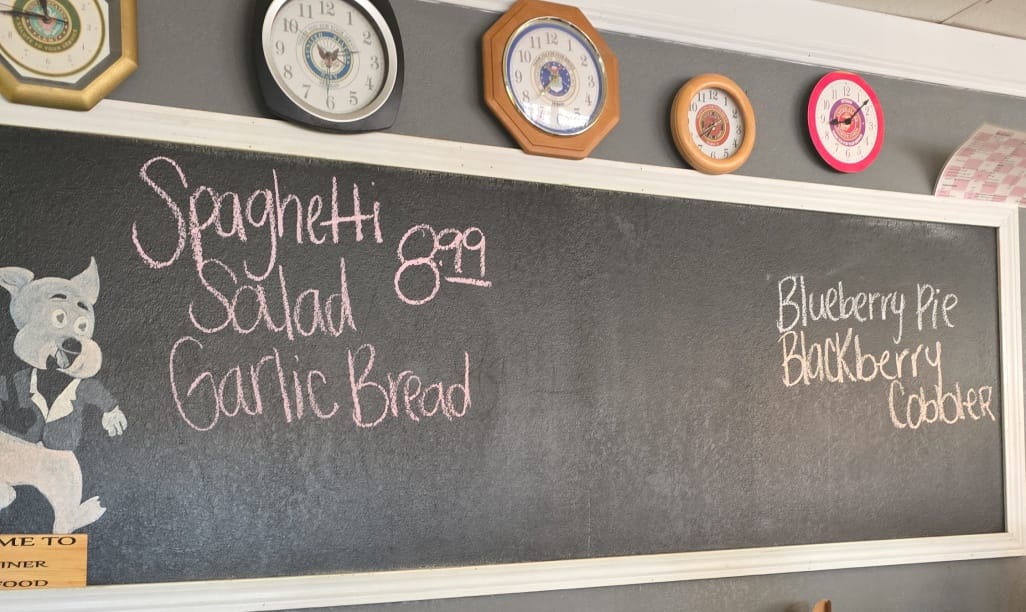 Spaghetti
8.99
Salad
Garlic Bread
Blueberry Pie
Blackberry
Cobbler
ME TO
INER
FOOD